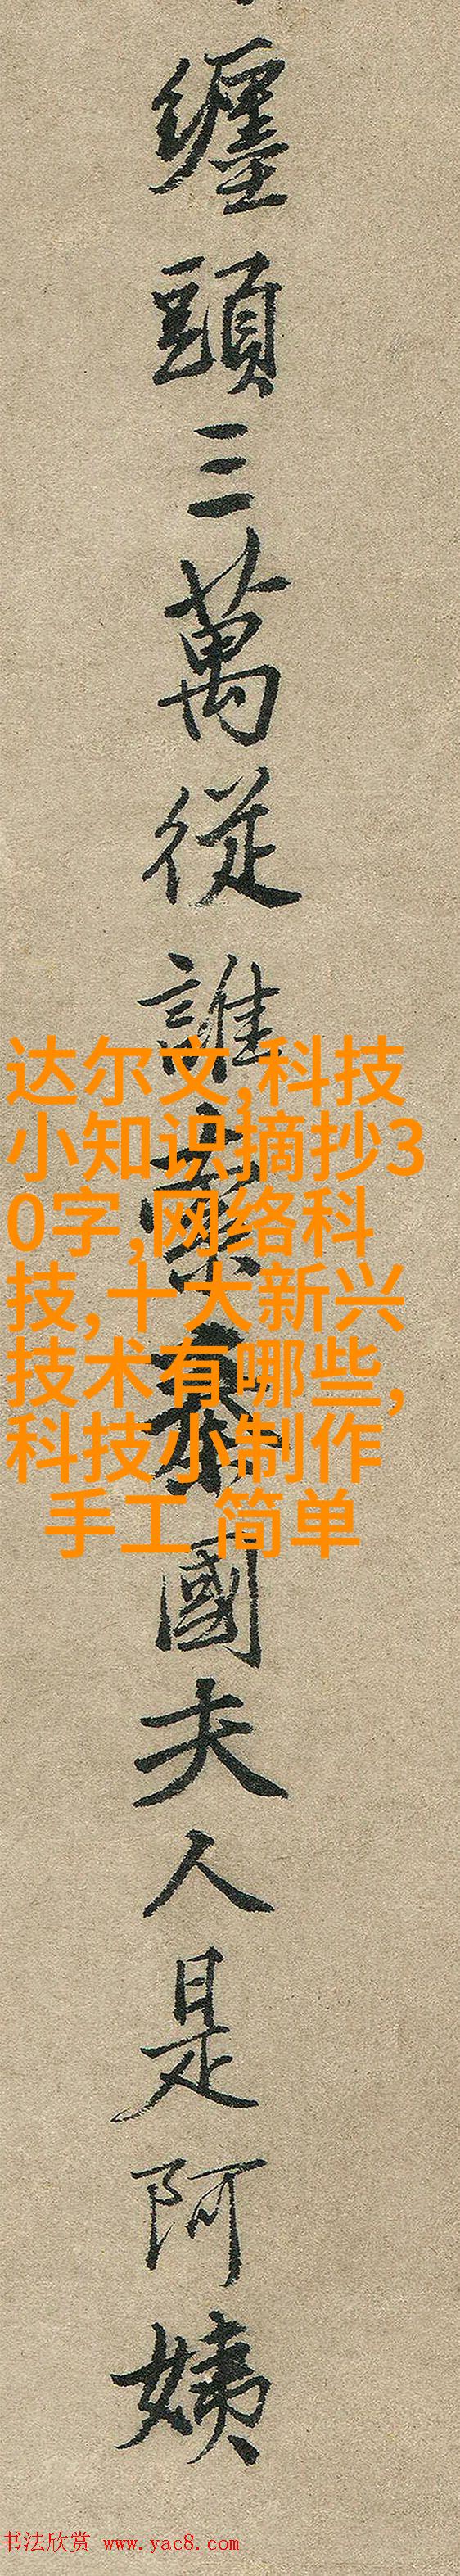 纏頭三萬從誰索秦國夫人是阿姨
达尔文,科技
小知识摘抄3
0字,网络科
技,十大新兴
技术有哪些,
科技小制作
手工 简单
书法欣赏 www.yac8.com